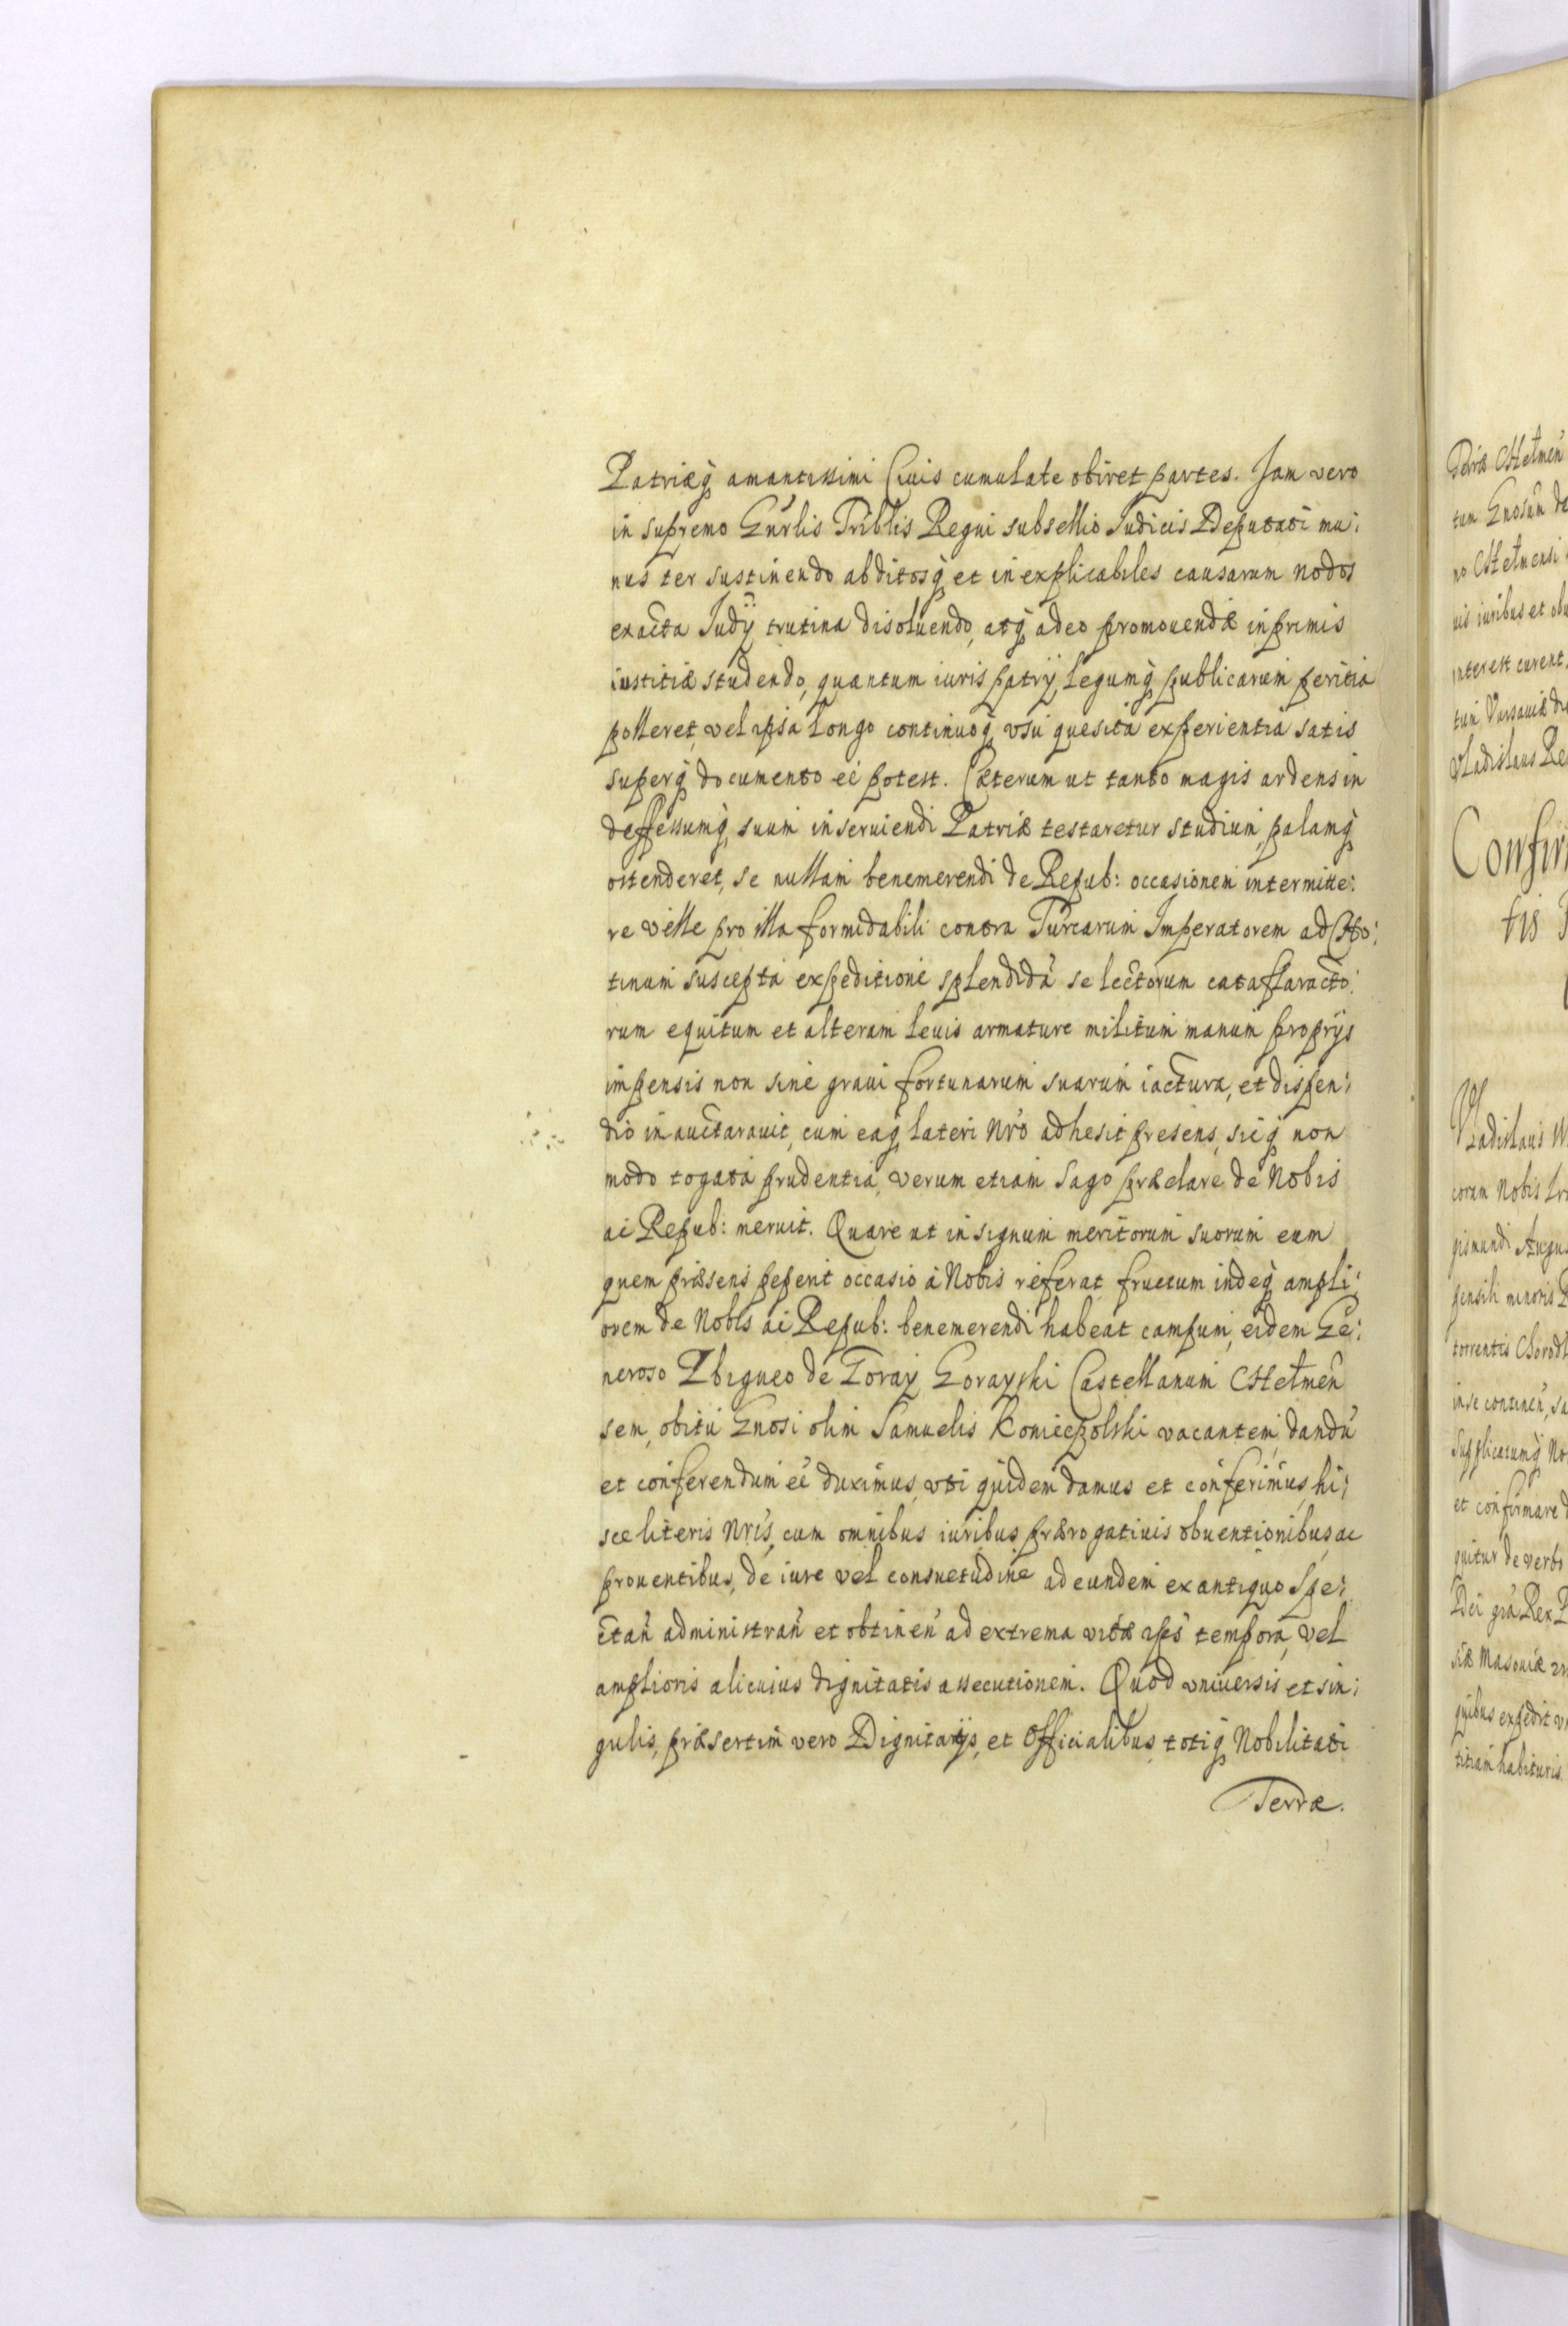 Patriæq̃ amantissimi Ciuis cumulate obiret partes. Jam vero
in supremo Gńrlis Triblis Regni subsellio Judicis Deputati mu:
nus ter sustinendo abditosq̃ et inexplicabiles causarum nodos
exacta Judỹ trutina disoluendo, atq̃ adeo promouendæ inprimis
iustitiæ studendo, quantum iuris patrij, legumq̃ publicarum peritia
polleret, vel ipsa longo continuoq̃ vsu quesita experientia satis
superq̃ documento eć potest. Cæterum ut tanto magis ardens in
deffessumq̃ suum inseruiendi Patriæ testaretur studium, palamq̃
ostenderet, se nullam benemerendi de Repub: occasionem intermitte:
re velle pro illa formidabili contra Turcarum Imperatorem ad Cho:
tinum suscepta expeditione splendida selectorum cataffracto:
rum equitum et alteram leuis armature militum manum proprijs
impensis non sine graui fortunarum suarum iactura, et dispen:
dio inauctarauit, cum eaq̃ lateri Nró adhesit presens, sicq̃ non
modo togata prudentia, verum etiam sago præclare de Nobis
ac Repub: meruit. Quare ut in signum meritorum suorum eum
quem præsens peperit occasio à Nobis referat fructum indeq̃ ampli:
orem de Nobis ac Repub: benemerendi habeat campum, eidem Ge:
neroso Zbigneo de Goray Gorayski Castellanum Chełmeń
sem, obitu Gnosi olim Samuelis Koniecpolski vacantem, dandú
et conferendum eć duximus, vti quidem damus et conferimus hi:
sce literis Nrís, cum omnibus iuribus prærogatiuis obuentionibus, ac
prouentibus, de iure vel consuetudine ad eundem ex antiquo spe:
ctań administrań et obtineń ad extrema vitæ ips̃ tempora, vel
amplioris alicuius dignitatis assecutionem. Quod vniuersis et sin:
gulis, præsertim vero Dignitarijs, et Officialibus, totiq̃ Nobilitati
Terræ.
Terræ Chełmeń
tum Gnosum de
no Chełmensi
uis iuribus et ob
interest curent.
tum Varsauiæ di
Vladislaus Re
Confir
tis
Vladislaus
coram Nobis
gismundi Augus
pensili minoris
torrentis
in se contineń,
Supplicatumq̃ No
et confirmare
quitur de verbo
Dei grá Rex P
siæ Masouiæ
quibus expedit
titiam habituris.